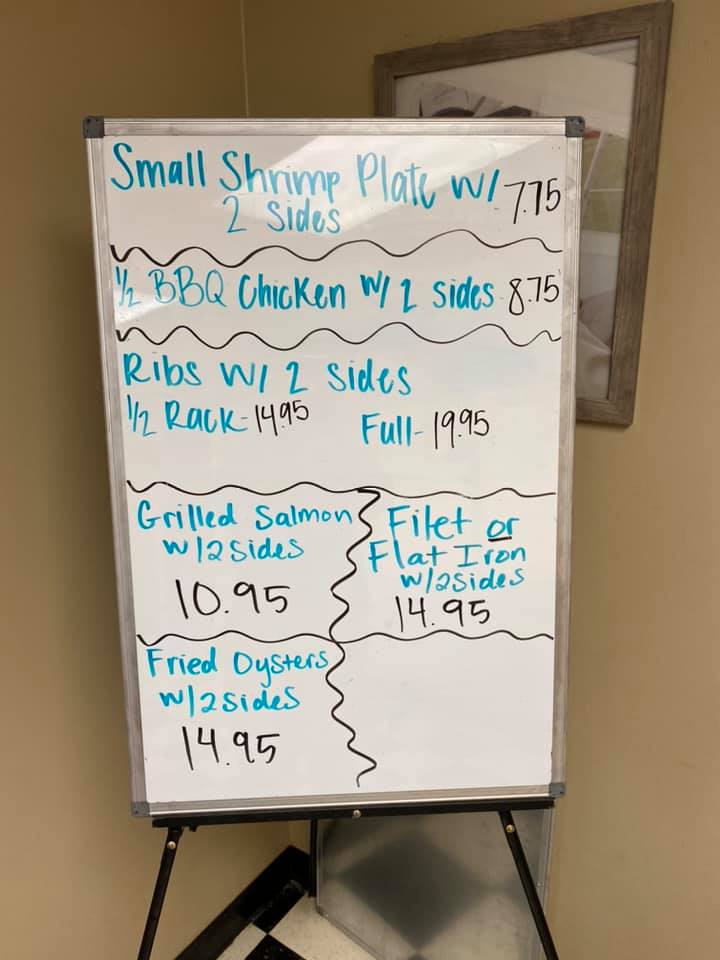 Small Shrimp Plate w/ 7.75
2 Sides
1/2 BBQ Chicken w/ 2 sides 8.75
Ribs w/ 2 sides
1/2 Rack- 14.95 Full- 19.95
Grilled Salmon
w/2 sides
10.95
Filet or
Flat Iron
w/2 sides
14.95
Fried Oysters
w/2 sides
14.95